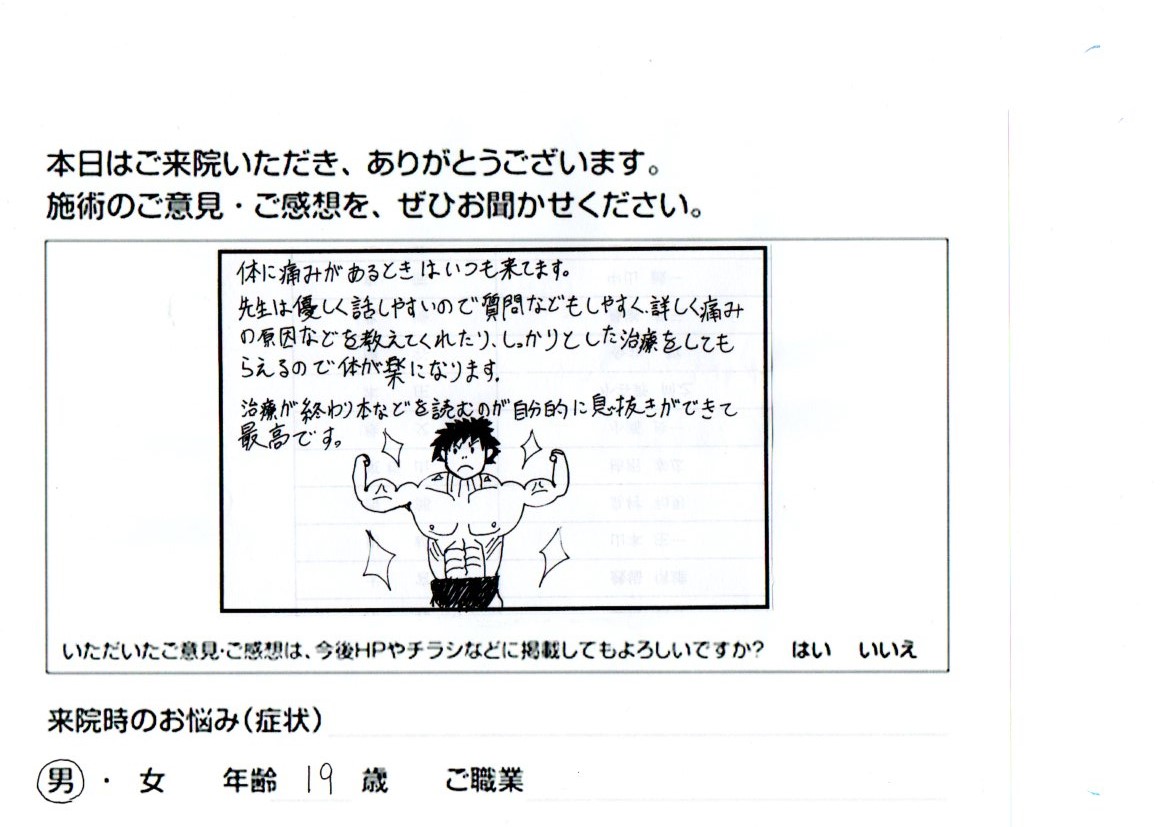 本日はご来院いただき、ありがとうございます。
施術のご意見・ご感想を、ぜひお聞かせください。
体に痛みがあるときはいつも来てます。
先生は優しく話しやすいので質問などもしやすく、詳しく痛み
の原因などを教えてくれたり、しっかりとした治療をしても
らえるので体が楽になります。
治療が終わり本などを読むのが自分的に息抜きができて
最高です。
いただいたご意見・ご感想は、今後HPやチラシなどに掲載してもよろしいですか? はい いいえ
来院時のお悩み(症状)
男 ・ 女 年齢 19 歳 ご職業